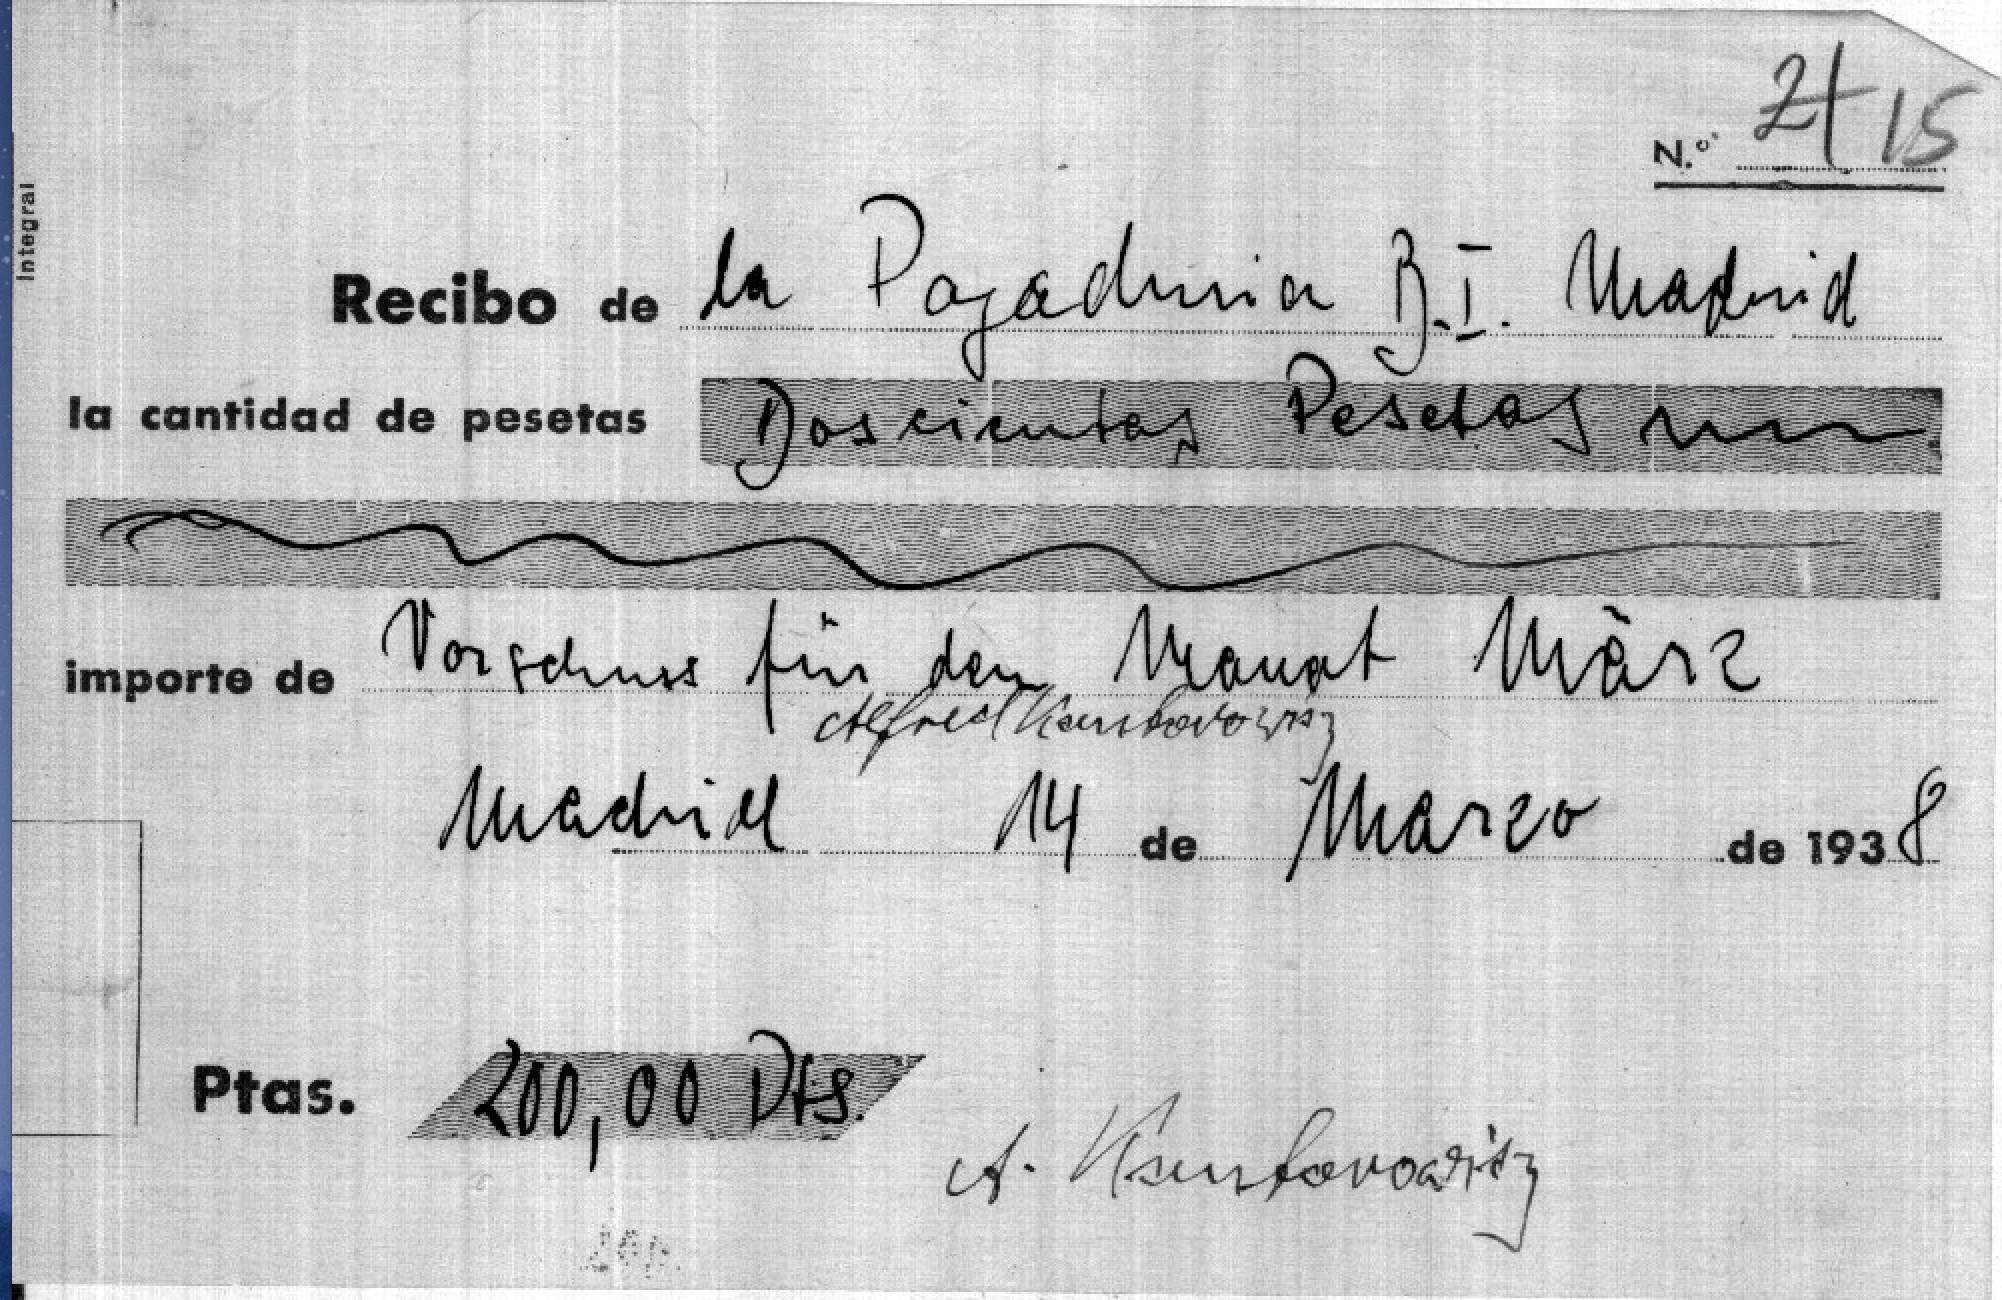 N.º 2115
Integral
Recibo de la Pagaduria B.I. Madrid
la cantidad de pesetas Doscientas Pesetas
importe de Vorschuss für den Monat März
Alfred
Madrid 14 de Marzo de 1938
Ptas. 200,00 Pts.
A.